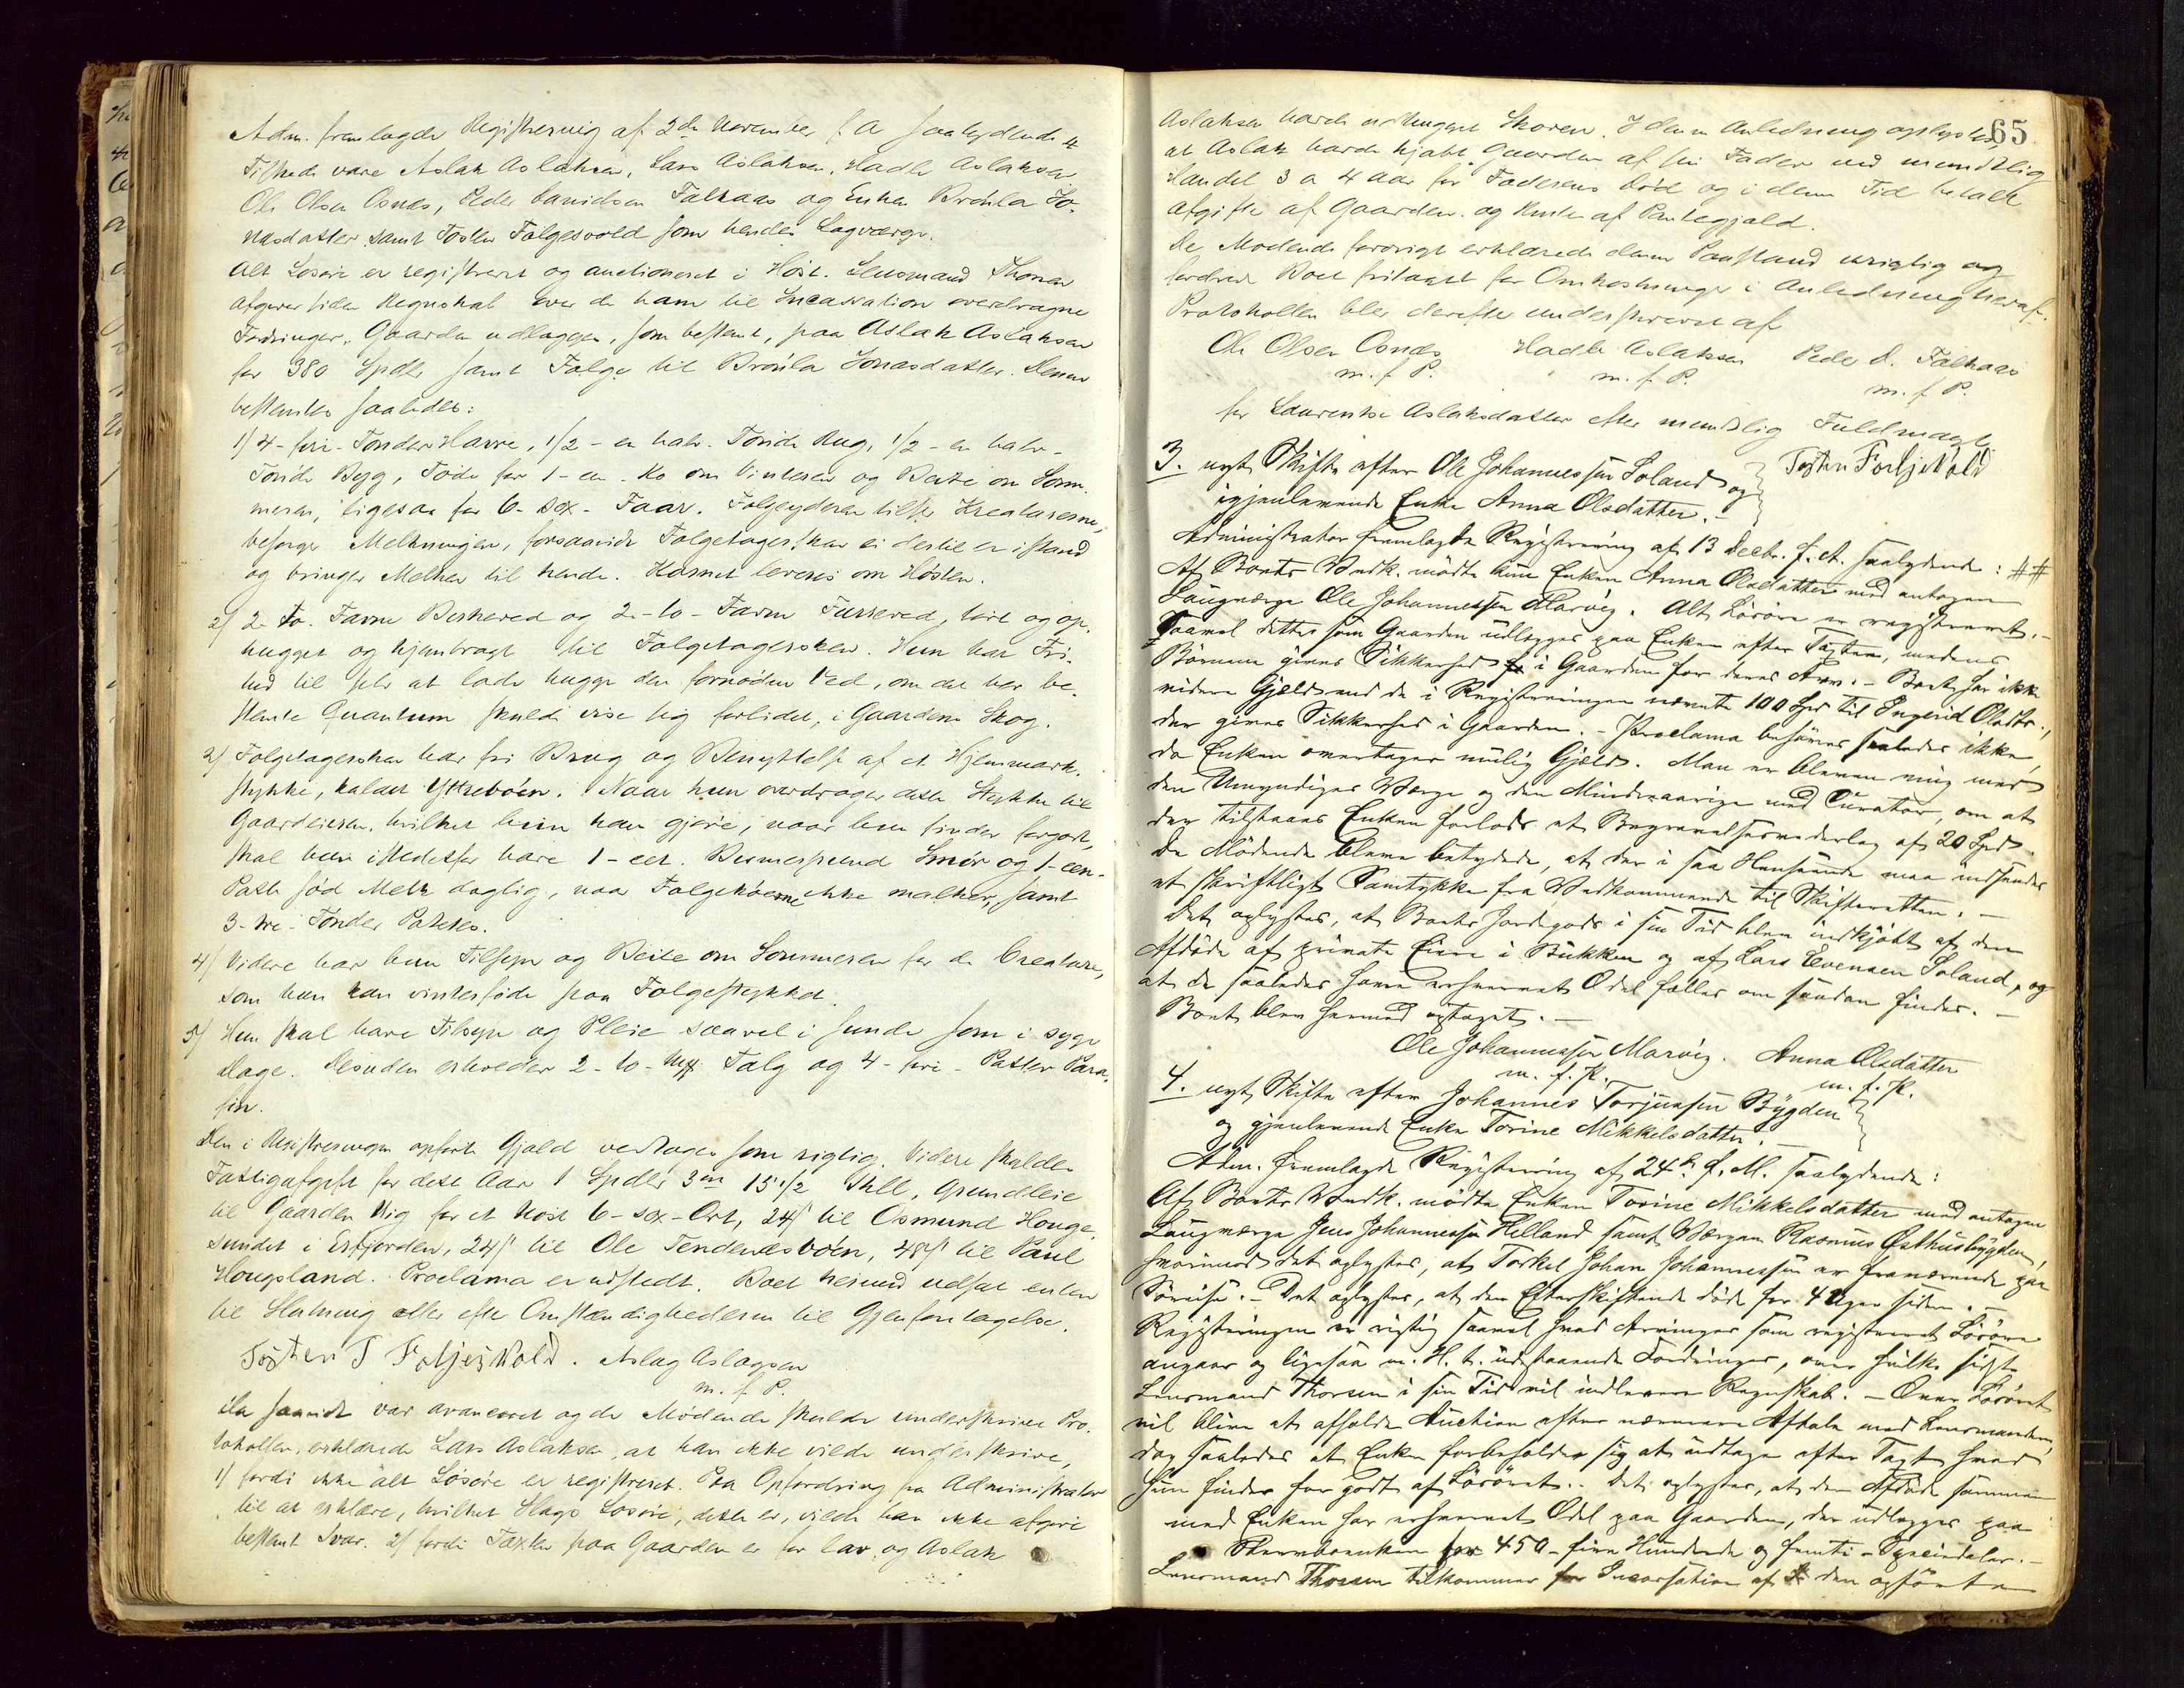 Adm. fremlagde Registrering af 2de November f. A. saalydende #
Tilstede vare Aslak Aslaksen, Lars Aslaksen, Hadle Aslaksen
Ole Olsen Osnæs, Peder Davidsen Falkaas og Enken Brønla Jo-
nasdatter samt Tosten Følgesvold som hendes Lagværge.
Alt Løsøre er registreret og auctioneret i Høst. Lensmand Thorsen
afgiver siden Regnskab over de ham til Incassation overdragne
Fordringer. Gaarden udlægges, som bestemt, paa Aslak Aslaksen
for 380 Spdlr samt Følge til Brønla Jonasdatter. Denne
bestemtes saaledes:
1) 4 - fire - Tønder Havre, 1/2 - en halv - Tønde Rug, 1/2 - en halv -
Tønde Byg, Føde for 1 - en - Ko om Vinteren og Beite om Som-
meren, ligesaa for 6 - sex - Faar. Følgeyderen tilser Kreaturerne,
besørger Melkningen, forsaavidt Følgetagersken ei dertil er istand
og bringer Melken til hende. Kornet leveres om Høsten.
2) 2 - to - Favne Birkeved og 2 - to - Favne Furreved, tørt og op-
hugget og hjembragt til Følgetagersken. Hun har Fri-
hed til selv at lade hugge den fornødne Ved, om det her be-
stemte Quantum skulde vise sig forlidet, i Gaardens Skog.
3) Følgetagersken har fri Brug og Benyttelse af et Hjemmark-
stykke, kaldet Yttrebøen. Naar hun overdrager dette Stykke til
Gaardeieren, hvilket hun kan gjøre, naar hun finder forgodt,
skal hun istedetfor have 1 - eet - Bismerpund Smør og 1 - een -
Potte sød Melk daglig, naar Følgekøerne ikke melker, samt
3 - tre - Tønder Potetes.
4) Videre har hun Tilsyn og Beite om Sommeren for de Creature,
som hun kan vinterføde paa Følgestykket.
5) Hun skal have Tilsyn og Pleie saavel i sunde som i syge
Dage. Desuden erholder 2 - to - Talg og 4 - fire - Potter Para-
fin.
Den i Registreringen opførte Gjæld vedtages som rigtig. Videre skyldes
Fattigafgift for dette Aar 1 Spdlr 3 Ort 15 1/2 Skll, Grundleie
til Gaarden Vig for et Nøst 6 - sex - Ort, 24 s til Osmund Houge-
sundet i Erfjorden, 24 s til Ole Tendenæsbøen, 48 s til Paul
Hougsland. Proclama er udstedt. Boet herved udsat enten
til Slutning eller efter Omstændighederne til Gjenforetagelse.
Tosten T Følgjesvold. Aslag Aslagsen
m. f. P.
Da saavidt var avanceret og de Mødende skulde underskrive Pro-
tokollen, erklærede Lars Aslaksen, at han ikke vilde underskrive,
1) fordi ikke alt Løsøre er registreret. Paa Opfordring fra Administrator
til at erklære, hvilket Slags Løsøre, dette er, vilde han ikke afgive
bestemt Svar. 2) fordi Taxten paa Gaarden er for lav, og Aslak
65
Aslaksen havde udhugget Skoven. I denne Anledning oplystes
at Aslak havde kjøbt Gaarden af sin Fader ved mundtlig
Handel 3 a 4 Aar før Faderens Død og i denne Tid betalt
Afgifter af Gaarden og Renter af Pantegjæld.
De Mødende forøvrigt erklærede denne Paastand urigtig og
fordrede Boet fritaget for Omkostninger i Anledning heraf.
Protokollen blev derefter underskrevet af
Ole Olsen Osnæs Hadle Aslaksen Peder D. Falkaas
m. f. P. m. f. P. m. f. P.
for Laurentse Aslaksdatter efter mundtlig Fuldmagt
Tosten Følgjesvold
3. nyt Skifte efter Ole Johannessen Soland og
igjenlevende Enke Anna Olsdatter. -
Administrator fremlagde Registrering af 13 Decbr. f. A. saalydende: ##
Af Boets Vedk. mødte kun Enken Anna Olsdatter med antagen
Laugværge Ole Johannessen Marvig. Alt Løsøre er registreret. -
Saavel dette som Gaarden udlægges paa Enken efter Taxten, medens
Børnene gives Sikkerhed i Gaarden for deres Arv. - Boet har ikke
videre Gjæld end de i Registreringen nævnte 100 Spd til Ingerid Olsdtr.,
der gives Sikkerhed i Gaarden. - Proclama behøves saaledes ikke,
da Enken overtager mulig Gjæld. Man er bleven enig med
den Umyndiges Værge og den Mindreaarige med Curator, om at
der tilstaaes Enken forlods et Begravelsesvederlag af 20 Spd. -
De Mødende bleve betydede, at der i saa Henseende maa indsendes
et skriftligt Samtykke fra Vedkommende til Skifteretten. -
Det oplystes, at Boets Jordegods i sin Tid blev indkjøbt af den
Afdøde af private Eiere i Bukken og af Lars Evensen Soland, og
at de saaledes have erhvervet Odel fælles om saadan findes. -
Boet blev hermed optaget. -
Ole Johannessen Marvig. Anna Olsdatter
m. f. P. m. f. P.
4. nyt Skifte efter Johannes Torjusen Bygden
og gjenlevende Enke Torine Mikkelsdatter. -
Adm. fremlagde Registrering af 24de f. M. saalydende:
Af Boets Vedk. mødte Enken Torine Mikkelsdatter med antagen
Laugværge Jens Johannessen Helland samt Værgen Rasmus Østhusbygden,
hvorimod det oplystes, at Torkel Johan Johannessen er fraværende paa
Søreise. - Det oplystes, at den Efterskiftende døde for 4 Uger siden. -
Registreringen er rigtig saavel hvad Arvinger som registreret Løsøre
angaar og ligesaa m. H. t. udestaaende Fordringer, over hvilke sidste
Lensmand Thorsen i sin Tid vil indlevere Regnskab. - Over Løsøret
vil blive at afholde Auction efter nærmere Aftale med Lensmanden,
dog saaledes at Enken forbeholder sig at udtage efter Taxt hvad
hun finder for godt af Løsøret. - Det oplystes, at den Afdøde sammen
med Enken har erhvervet Odel paa Gaarden, der udlægges paa
Stervboenken for 450 - fire Hundrede og femti - Speciedaler. -
Lensmand Thorsen tilkommer for Incassation af den opførte